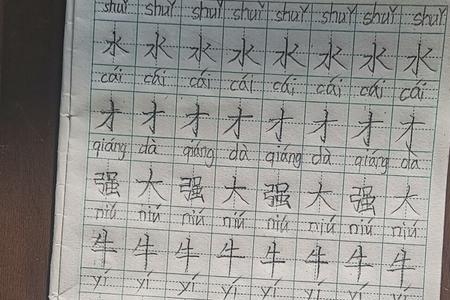 shuǐ shuǐ shuǐ shuǐ shuǐ shuǐ shuǐ shuǐ
水 水 水 水 水 水 水 水
cái cái cái cái cái cái cái cái
才 才 才 才 才 才 才 才
qiáng dà qiáng dà qiáng dà qiáng dà
强 大 强 大 强 大 强 大
niú niú niú niú niú niú niú niú
牛 牛 牛 牛 牛 牛 牛 牛
yí yí yí yí yí yí yí yí